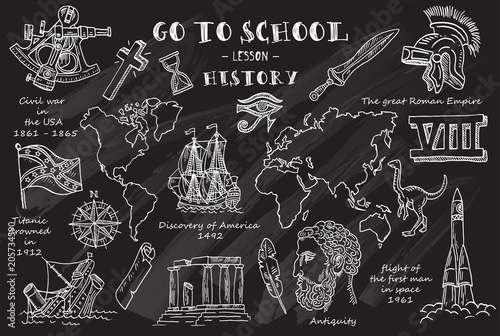 GO TO SCHOOL
- LESSON -
HISTORY
Civil war
in the USA
1861 - 1865
The great Roman Empire
VIII
Titanic
drowned
in
1912
Discovery of America
1492
Antiquity
flight of
the first man
in space
1961
205734590